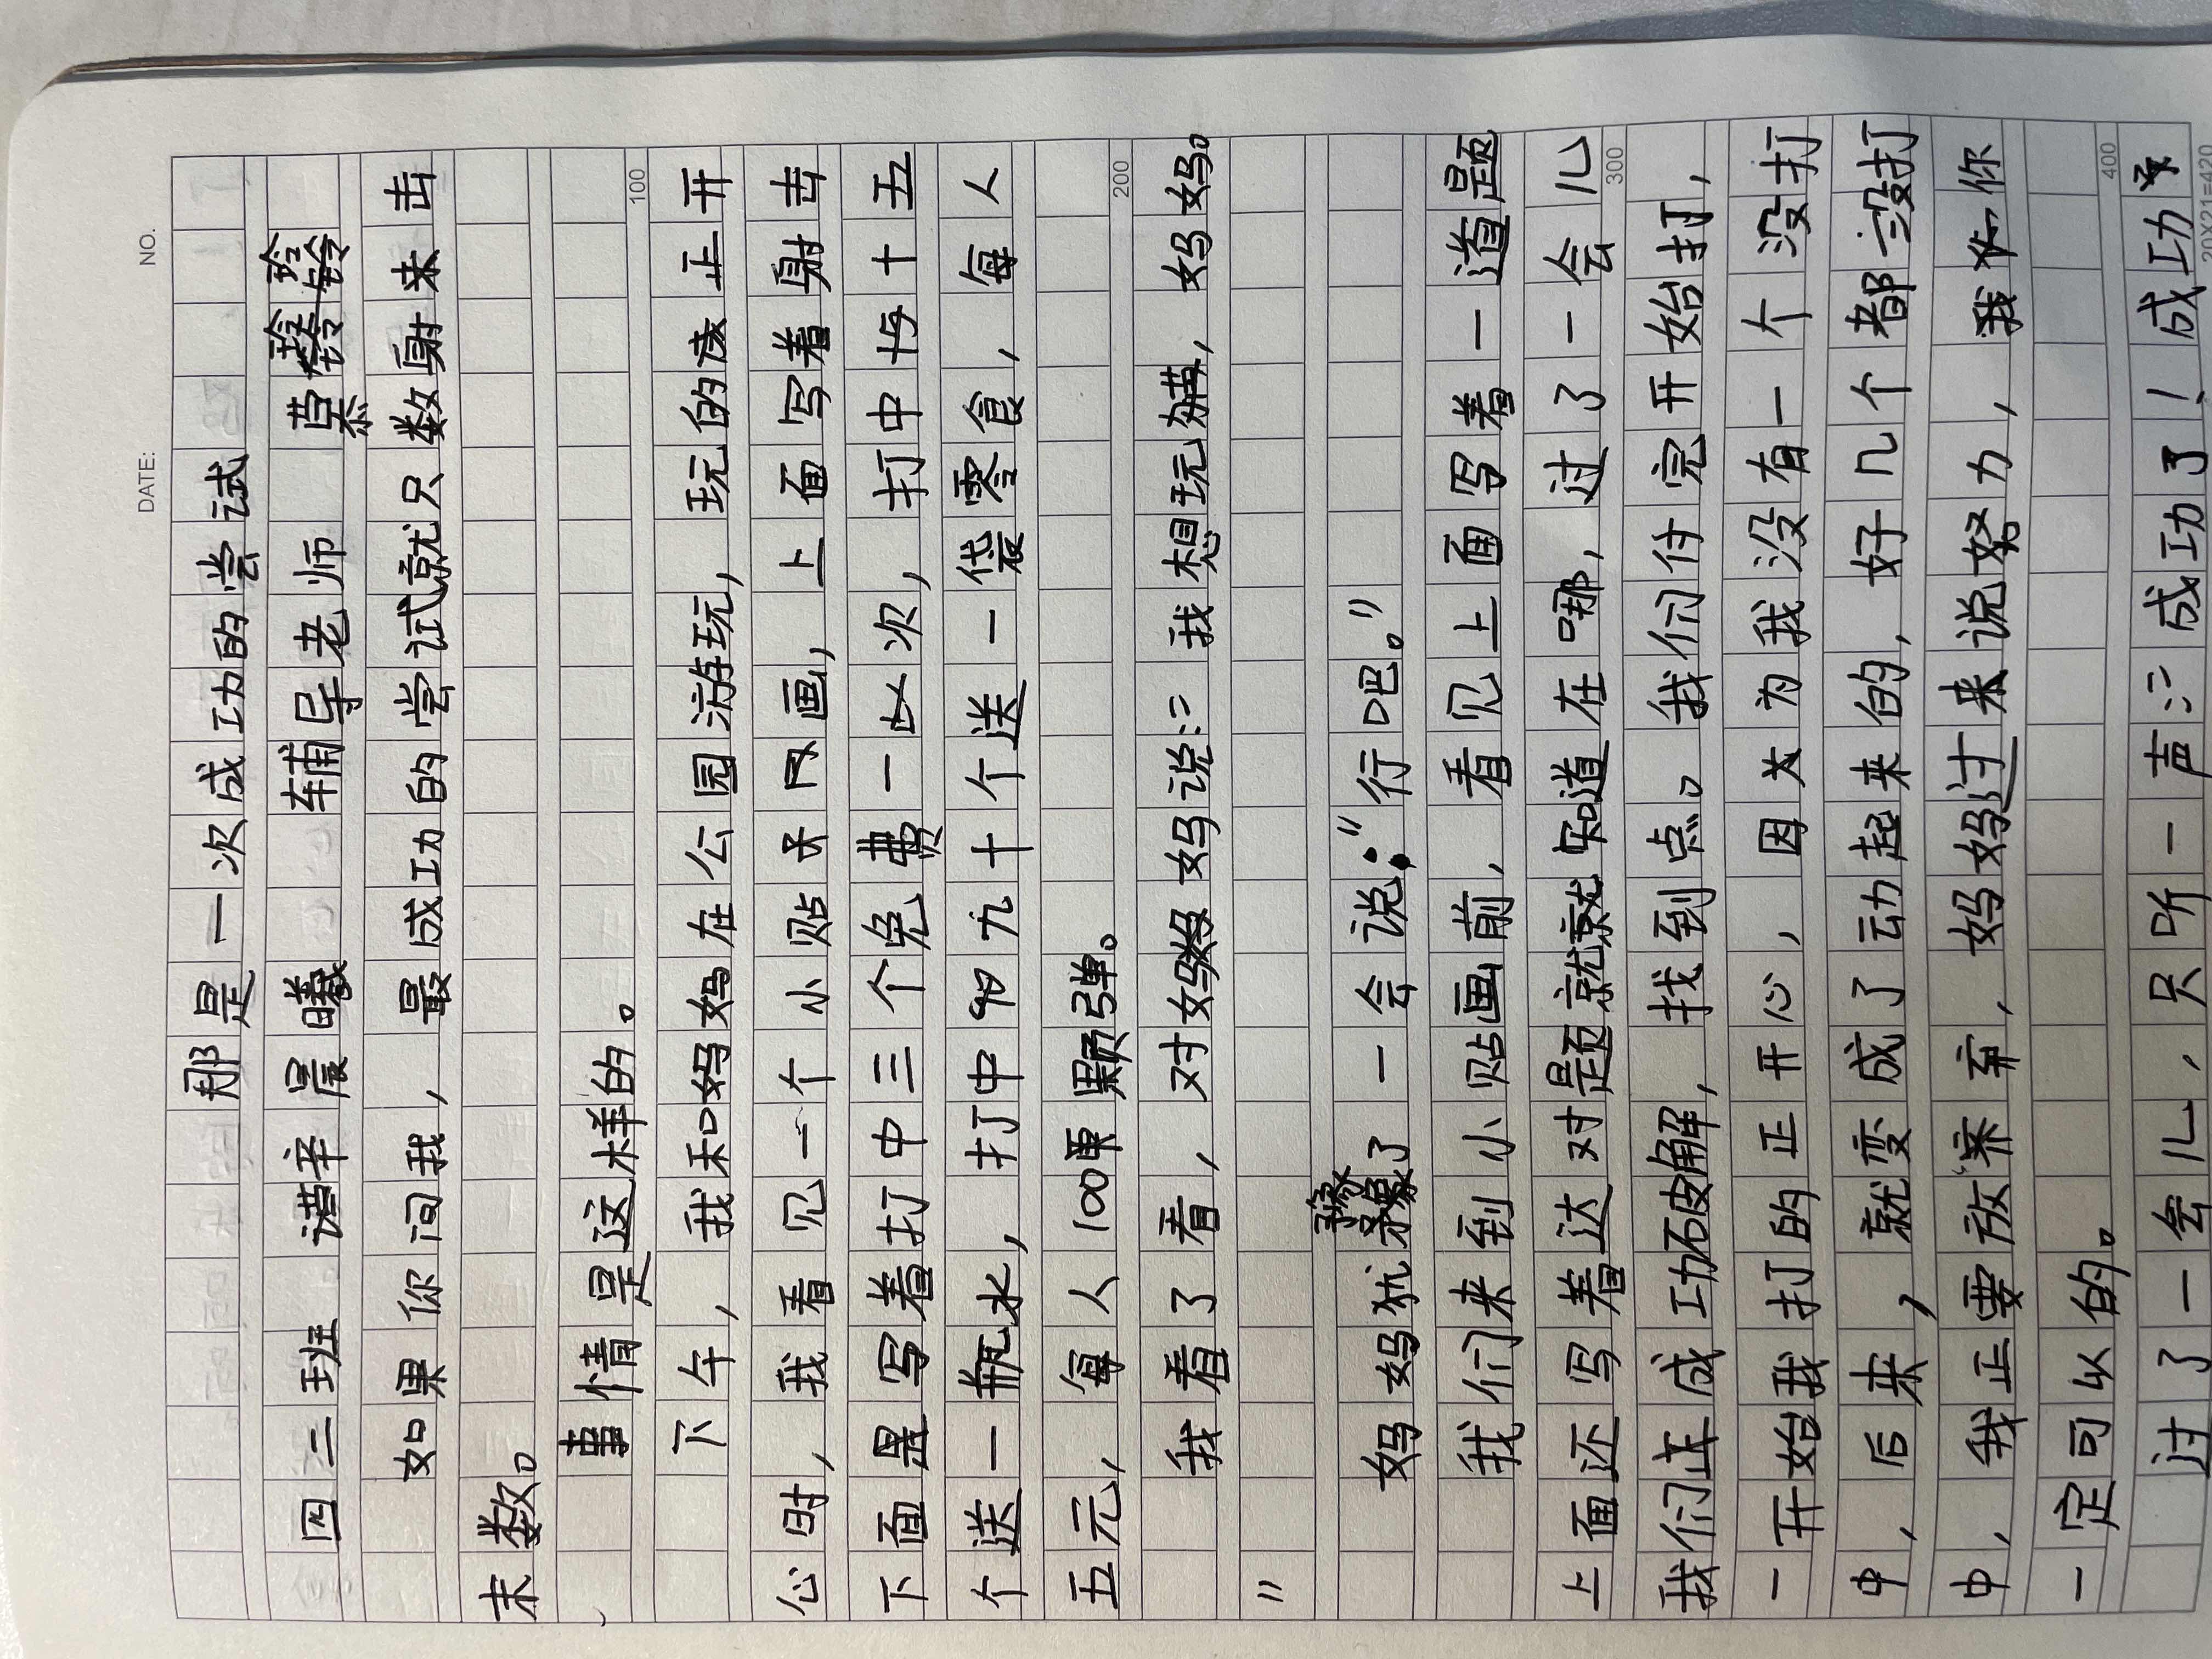 DATE: NO.
那是一次成功的尝试
四二班 谱辛晨曦 辅导老师 慕玲玲
如果你问我，最成功的尝试就只数射来击
末数。
事情是这样的。
100
下午，我和妈妈在公园游玩，玩的正开
心时，我看见一个小贴画，上面写着射击
下面是写着打中三个免费一次，打中十五
个送一瓶水，打中九十个送一袋零食，每人
五元，每人100颗弹。
200
我看了看，对妈妈说：“我想玩，妈妈。
”
妈妈犹豫了一会说：“行吧。”
我们来到小贴画前，看见上面写着一道题
上面还写着达对是题就就知道在哪，过了一会儿
300
我们成功破解，找到点。我们付完开始打，
一开始我打的正开心，因为我没有一个没打
中，后来，就变成了动起来的，好几个都没打
中，我正要放弃，妈妈过来说努力，我你
一定可以的。
400
过了一会儿，只听一声：“成功了！成功
20X21=420